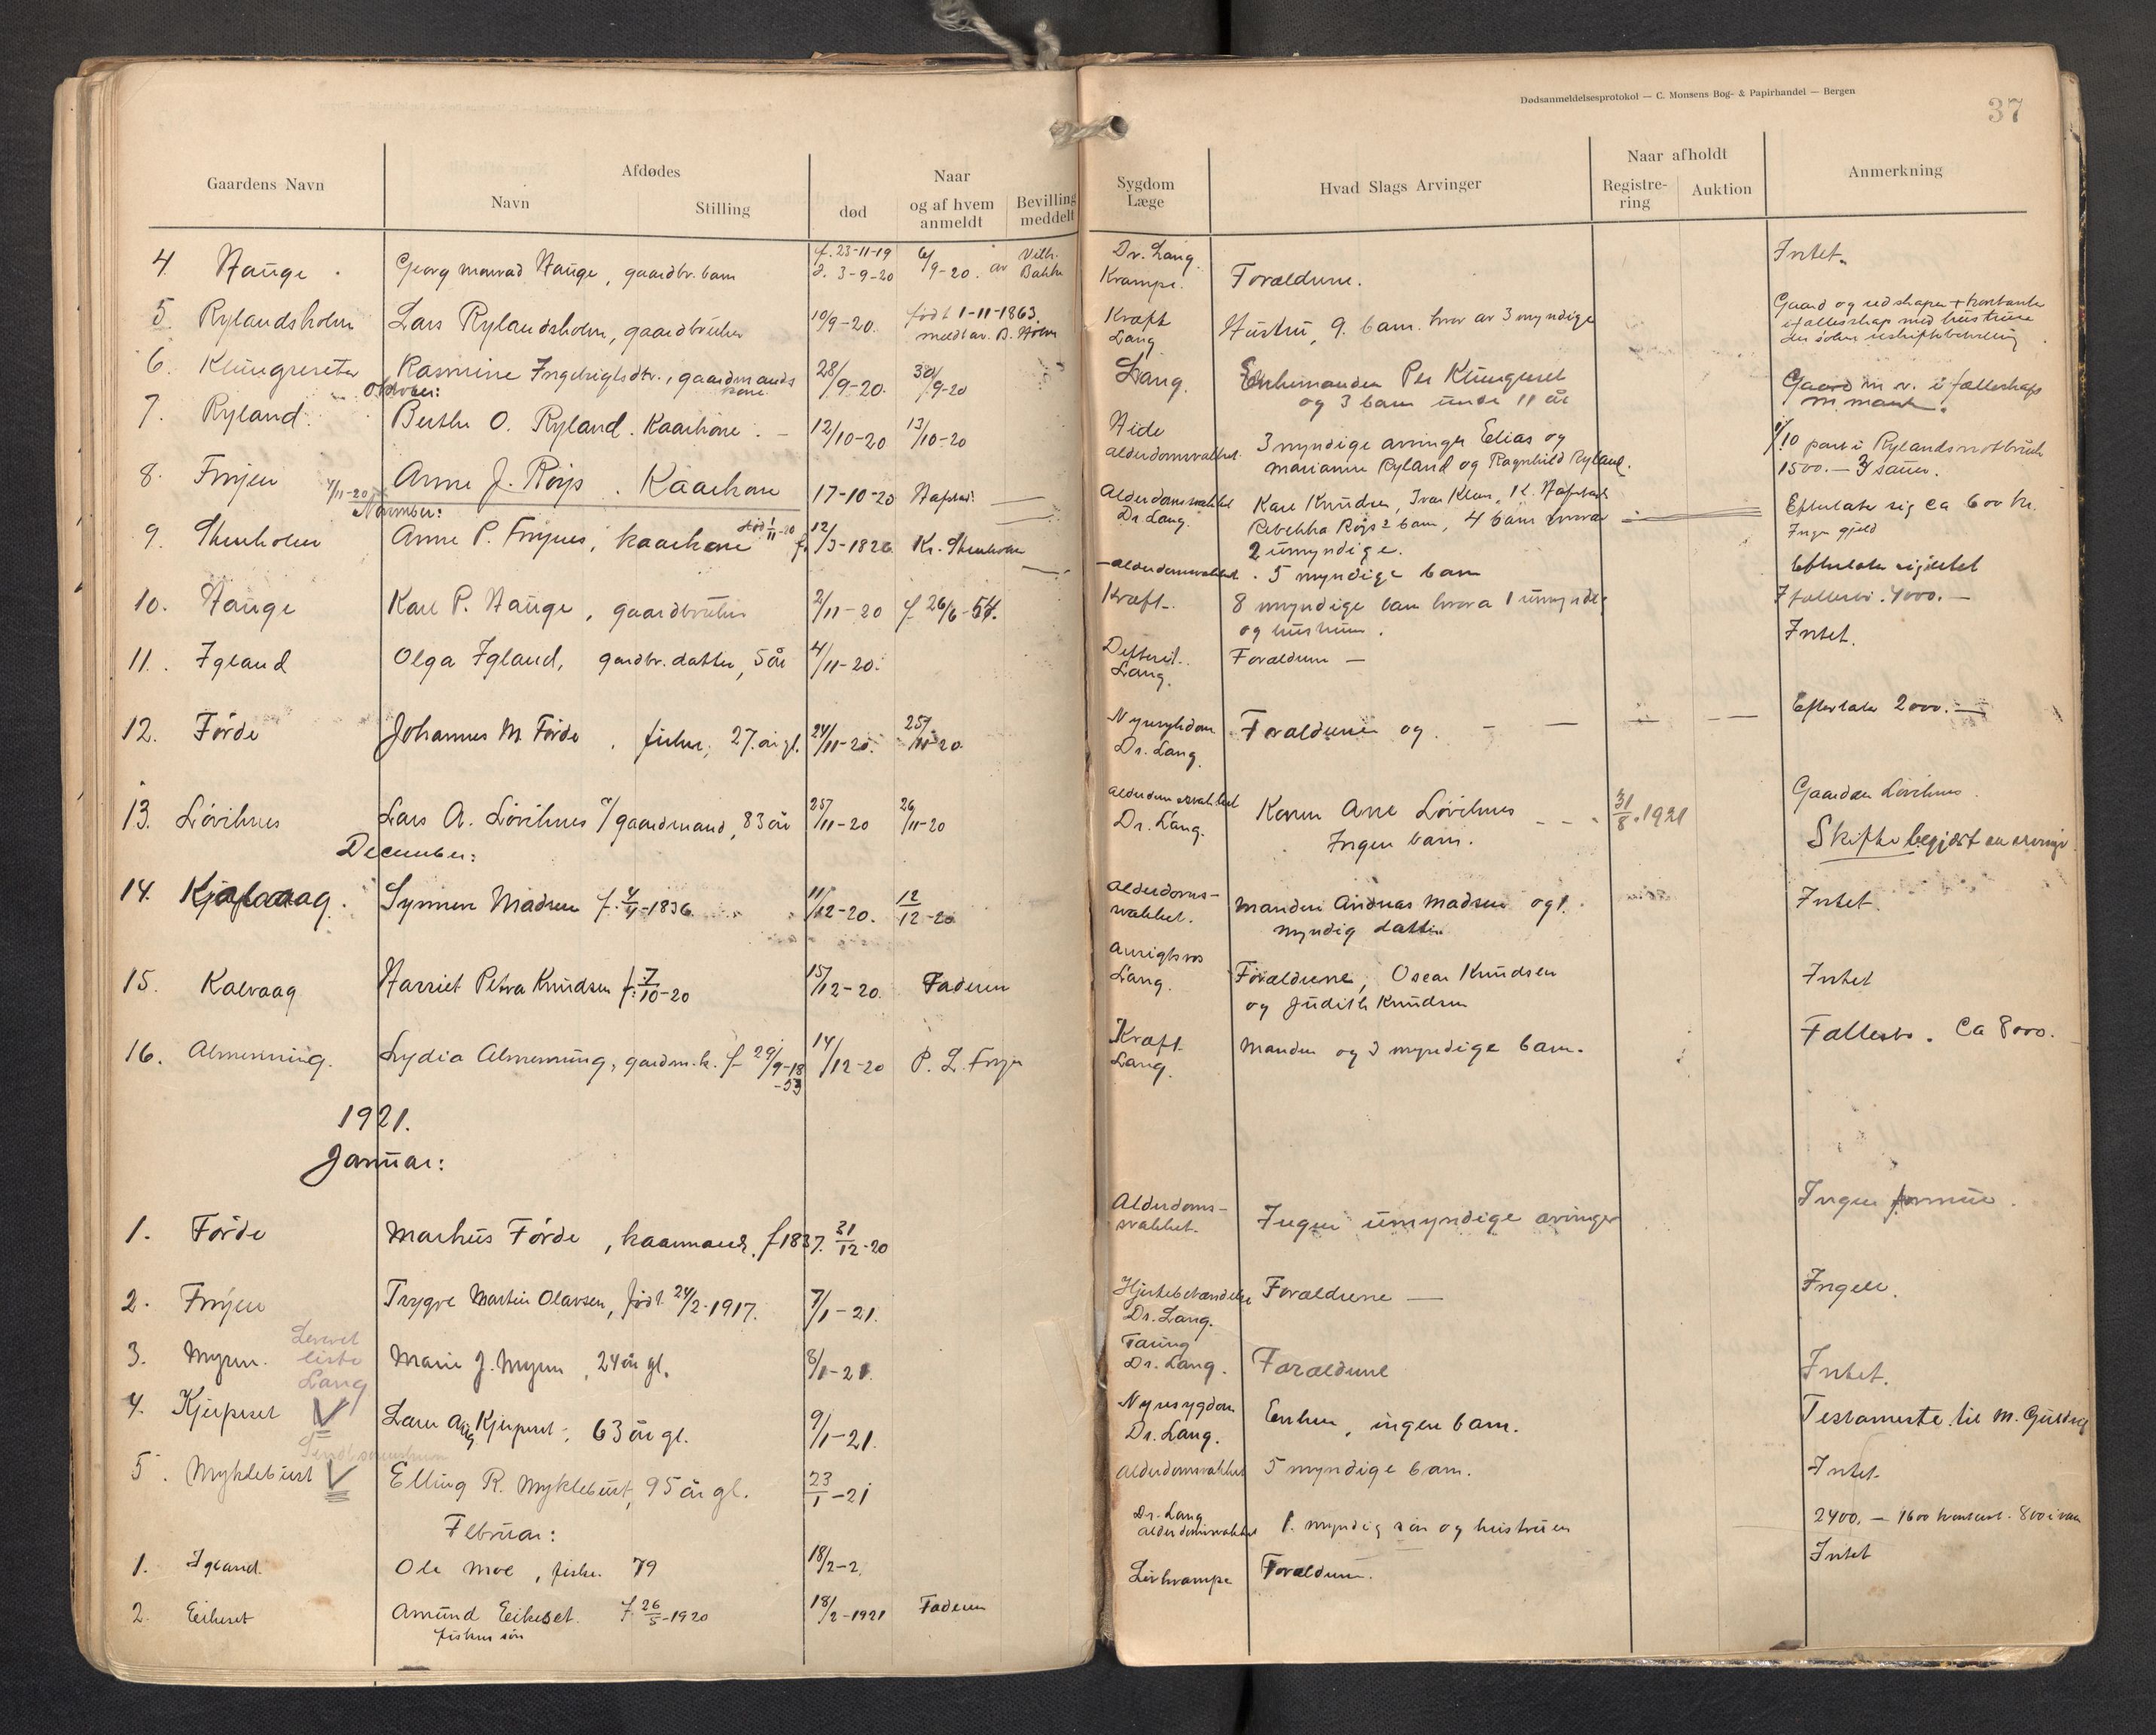 Dødsanmeldelsesprotokol — C. Monsens Bog- & Papirhandel — Bergen
37
Gaardens Navn
Afdødes
Navn
Stilling
død
Naar
og af hvem
anmeldt
Bevilling
meddelt
Sygdom
Læge
Hvad Slags Arvinger
Naar afholdt
Registre-
ring
Auktion
Anmerkning
4. Hauge Georg Hauge, gaardbr. barn f. 23-11-19 d. 3-9-20 6/9-20 av Vilh. Bakke Dr. Lang Krampe. Forældrene. Intet.
5. Rylandsholm Lars Rylandsholm, gaardbruker 10/9-20. født 1-11-1863. Kræft Lang Hustru, 9 barn hvor av 3 myndige
Gaard og redskaper + kontanter
i fællesskap med hustruen
6. Klungreseter Rasmine Ingebrigtsdtr., gaardmands kone 28/9-20. 30/9-20 Lang. Enkemanden Per Klungreset
og 3 barn under 11 år
Gaard m. v. i fællesskap
m. mand.
Oktober:
7. Ryland. Berthe O. Ryland. Kaarkone. 12/10-20 13/10-20 Alderdomsvakhet. 3 myndige arvinger Elias og
Marianne Ryland og Ragnhild Ryland.
1/10 part i Rylandsnotbruk
1500.—
8. Frøyen Anne J. Røys. Kaarkone 17-10-20 Alderdomsvakhet Dr. Lang. Kare Knudsen, Ivar
Rebekka Røys 2 barn, 4 barn hvorav
2 umyndige.
Efterlater sig ca 600 kr.
Ingen gjeld
4/11-20
November:
9. Steinholm Anne P. Frøynes, kaarkone død 1/11-20 f. 12/3-1826 Kr. Steinholm Alderdomsvakhet. 5 myndige barn Efterlater sig intet
10. Hauge Kare P. Hauge, gaardbruker 2/11-20 f 26/6-54. Kræft. 8 myndige barn hvorav 1 umyndig
og hustruen.
I fællesbo. 4000.—
11. Igland Olga Igland, gardbr. datter, 5 år 4/11-20. Lang. Forældrene — Intet.
12. Förde Johannes M. Förde. fisker, 27. år gl. 24/11-20. 25/11-20. Nyresykdom Dr. Lang. Forældrene og Efterlater 2000.—
13. Lövihnes Lars A. Lövihnes, gaardmand, 83 år 25/11-20 26/11-20 Alderdomsvakhet Dr. Lang. Konen Ane Lövihnes
Ingen barn.
31/8.1921
Gaarden Lövihnes.
Skifte begjært av arvinger
December:
14. Kjølvaag. Synneve Madsen f. 4/4-1836 11/12-20. 12/12-20 Alderdoms-
vakhet. Manden Andreas Madsen og 1.
myndig datter
Intet
15. Kalvaag Harriet Petra Knudsen f. 7/10-20 15/12-20. Faderen Lang. Forældrene, Oscar Knudsen
og Judith Knudsen
Intet
16. Almenning. Lydia Almenning, gardm.k. f 29/9-18
-53 14/12-20 P. L. Frøyen Kræft Lang. Manden og 3 myndige barn. Fællesbo. Ca 8000.
1921.
Januar:
1. Förde Markus Förde, kaarmand, f 1837. 31/12-20 Alderdoms-
svakhet. Ingen umyndige arvinger Ingen formue.
2. Frøyen Trygve Martin Olavsen, født 24/2-1917. 7/1-21. Hjertebetændelse Dr. Lang. Forældrene — Ingen.
Leveret
liste
Lang
3. Myren. Marie J. Myren, 24 år gl. 8/1-21. Tæring Dr. Lang. Forældrene Intet.
4. Kjerpeset Kjerpeset, 63 år gl. 9/1-21. Nyresygdom Dr. Lang. Enken, ingen barn. Testamente til M.
5. Myklebust Elling R. Myklebust, 95 år gl. 23/1-21 Alderdomsvakhet 5 myndige barn. Intet.
Februar:
1. Igland. Ole Moe, fisker 79 18/2-2. Dr. Lang Alderdomsvakhet 1. myndig søn og hustruen 2400.— 1600 kontant. 800 i
2. Eikeset Amund Eikeset. f. 26/5-1920
fiskers søn 18/2-1921 Faderen Forældrene. Intet